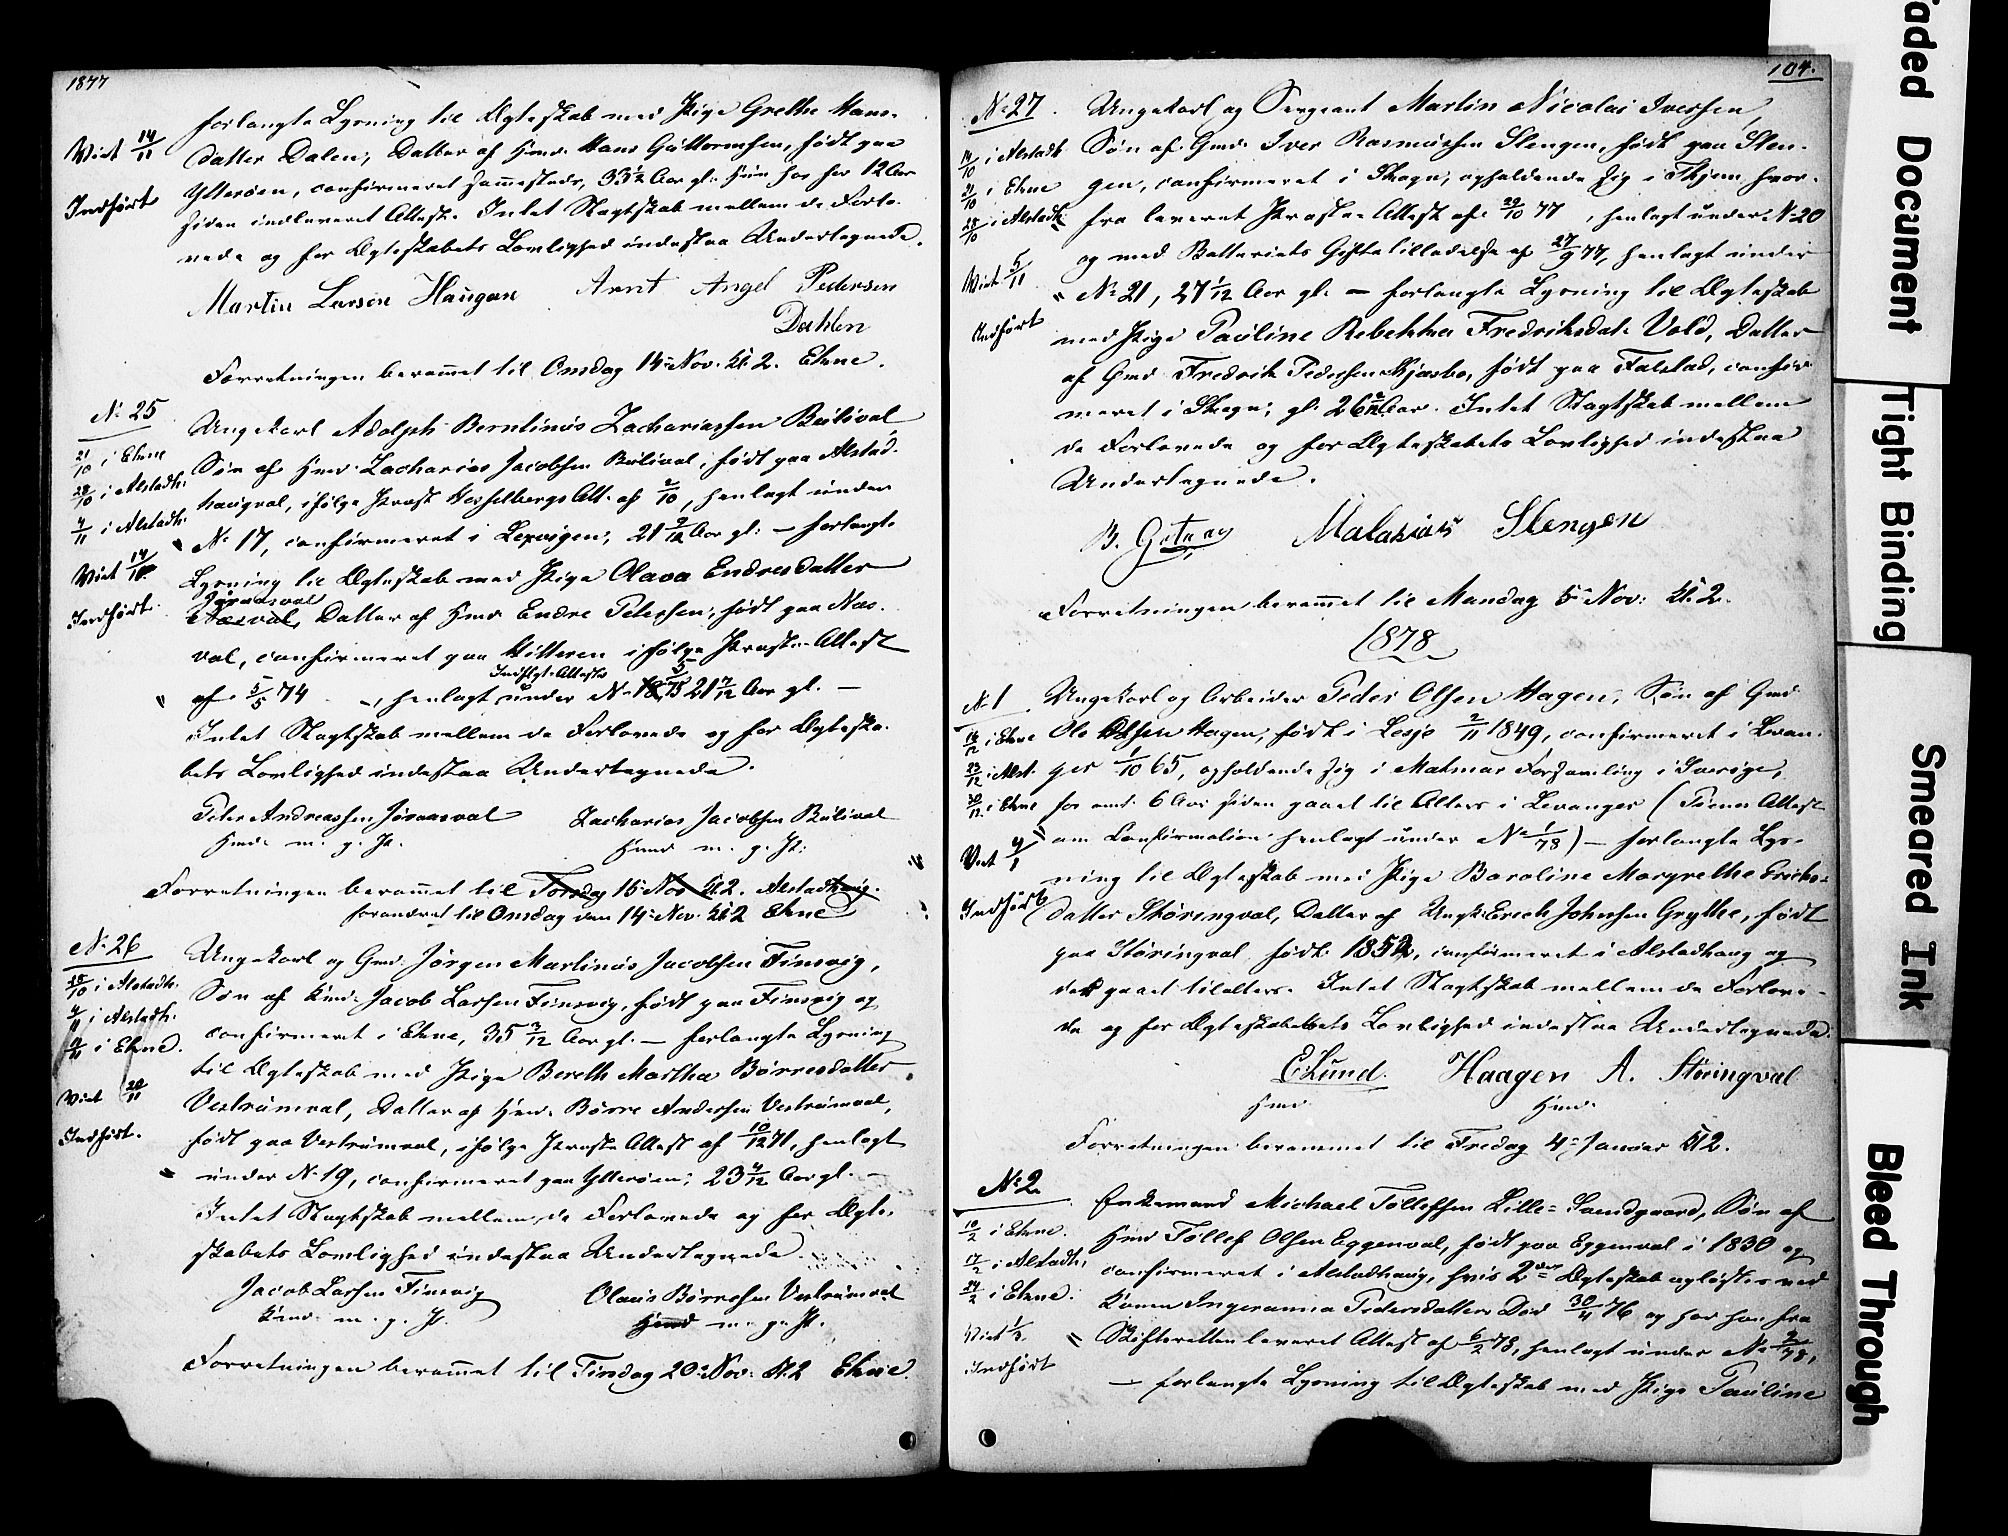 1877
forlangte Lysning til Ægteskab med Pige Grethe Hans-
Viet 14/11
datter Dalen, Datter af Hmd. Hans Guttormsen, født paa
Indført
Ytterøen, confirmeret sammesteds, 33 1/2 Aar gl. Hun har for 12 Aar
siden indleveret Attest. Intet Slagtskab mellem de Forlo-
vede og for Ægteskabets Lovlighed indestaa Undertegnede.
Martin Larsen Haugan Arnt Angel Pedersen
Dahlen
Forretningen berammet til Onsdag 14de Nov. Kl. 2. Ekne.
No 25
21/10 i Ekne
28/10 i Alstadh.
4/11 i Alstadh.
Viet 14/11
Indført
Ungekarl Adolph Berntinus Zachariassen Bulival
Søn af Hmd. Zacharias Jacobsen Bulival, født paa Alstad-
haugval, ifølge Provst Hesselbergs Att. af 2/10, henlagt under
No 17, confirmeret i Lexvigen, 21 2/12 Aar gl. – forlangte
Lysning til Ægteskab med Pige Olava Endresdatter
Jøraasval
Næsval, Datter af Hmd Endre Petersen, født paa Næs-
val, confirmeret paa Hitteren ifølge Præste-Attest
Indflyt. Attester
af 5/5 74 –, henlagt under No 18, 21 7/12 Aar gl. –
Intet Slagtskab mellem de Forlovede og for Ægteska-
bets Lovlighed indestaa Undertegnede.
Peter Andreassen Jøraasval Zacharias Jacobsen Bulival
Hmd. m. p. P. Hmd m. p. P.
Forretningen berammet til Torsdag 15de Nov Kl. 2. Alstadhaug.
forandret til Onsdag den 14de Nov. Kl. 2 Ekne
No 26
28/10 i Alstadh.
4/11 i Alstadh.
i Ekne.
Viet 20/11
Indført.
Ungekarl og Gmd. Jørgen Martinus Jacobsen Finsvig,
Søn af Kmd. Jacob Larsen Finsvig, født paa Finsvig og
confirmeret i Ekne, 35 3/12 Aar gl. – forlangte Lysning
til Ægteskab med Pige Bereth Martha Børresdatter
Vestrumval, Datter af Hmd. Børre Andersen Vestrumval,
født paa Vestrumval, ifølge Præste Attest af 10/12 71, henlagt
under No 19, confirmeret paa Ytterøen, 23 4/12 Aar gl. –
Intet Slagtskab mellem de Forlovede og for Ægte-
skabets Lovlighed indestaa Undertegnede.
Jacob Larsen Finsvig Olaus Børresen Vestrumval
Kmd. m. p. P. Hmd m. p. P.
Forretningen berammet til Tirsdag 20de Nov. Kl. 2 Ekne.
104.
No 27
14/10 i Alstadh
21/10 i Ekne
28/10 i Alstadh.
Viet 5/11
Indført
Ungekarl og Sergeant Martin Nicolai Iversen,
Søn af Gmd. Iver Rasmussen Stengen, født paa Sten-
gen, confirmeret i Skogn, opholdende sig i Thjem hvor-
fra leveret Præste-Attest af 29/10 77, henlagt under No 20
og med Batteriets Giftetilladelse af 27/9 77, henlagt under
No 21, 27 1/12 Aar gl. – forlangte Lysning til Ægteskab
med Pige Pauline Rebekka Fredriksdat. Vold, Datter
af Gmd. Fredrik Pedersen Hjasbo, født paa Falstad, confir-
meret i Skogn, gl. 26 Aar. Intet Slagtskab mellem
de Forlovede og for Ægteskabets Lovlighed indestaa
Undertegnede.
B. Malakias Stengen
Forretningen berammet til Mandag 5te Nov. Kl. 2.
1878
No 1
16/12 i Ekne
23/12 i Alst.
30/12 i Ekne
Viet 4/1
Indført
Ungekarl og Arbeider Peder Olsen Hagen, Søn af Gmd
Ole Olsen Hagen, født i Lesje 2/11 1849, confirmeret i Levan-
ger 1/10 65, opholdende sig i Matmar Forsamling i Sverige,
for omt. 6 Aar siden gaaet til Alters i Levanger (Pienes Attest
om Confirmation henlagt under No 1/78) – forlangte Lys-
ning til Ægteskab med Pige Baroline Margrethe Erichs-
datter Støringval, Datter af Ungk. Erich Johnsen Grythe, født
paa Støringval født 1852, confirmeret i Alstadhaug og
der gaaet tilalters. Intet Slagtskab mellem de Forlove-
de og for Ægteskabets Lovlighed indestaa Undertegnede.
E Lund. Haagen A. Støringval
Hmd Hmd.
Forretningen berammet til Fredag 4de Januar Kl 2.
No 2
10/2 i Ekne.
17/2 i Alstadh.
24/2 i Ekne.
Viet 1/3.
Indført
Enkemand Michael Tollefsen Lille-Sandgaard, Søn af
Hmd Tollef Olsen Eggenval, født paa Eggenval i 1830 og
confirmeret i Alstadhaug, hvis 2det Ægteskab opløstes ved
Konen Ingeranna Pedersdatters Død 30/4 76 og har han fra
Skifteretten leveret Attest af 6/2 78, henlagt under No 2/78,
– forlangte Lysning til Ægteskab med Pige Pauline
Faded Document
Tight Binding
Smeared Ink
Bleed Through